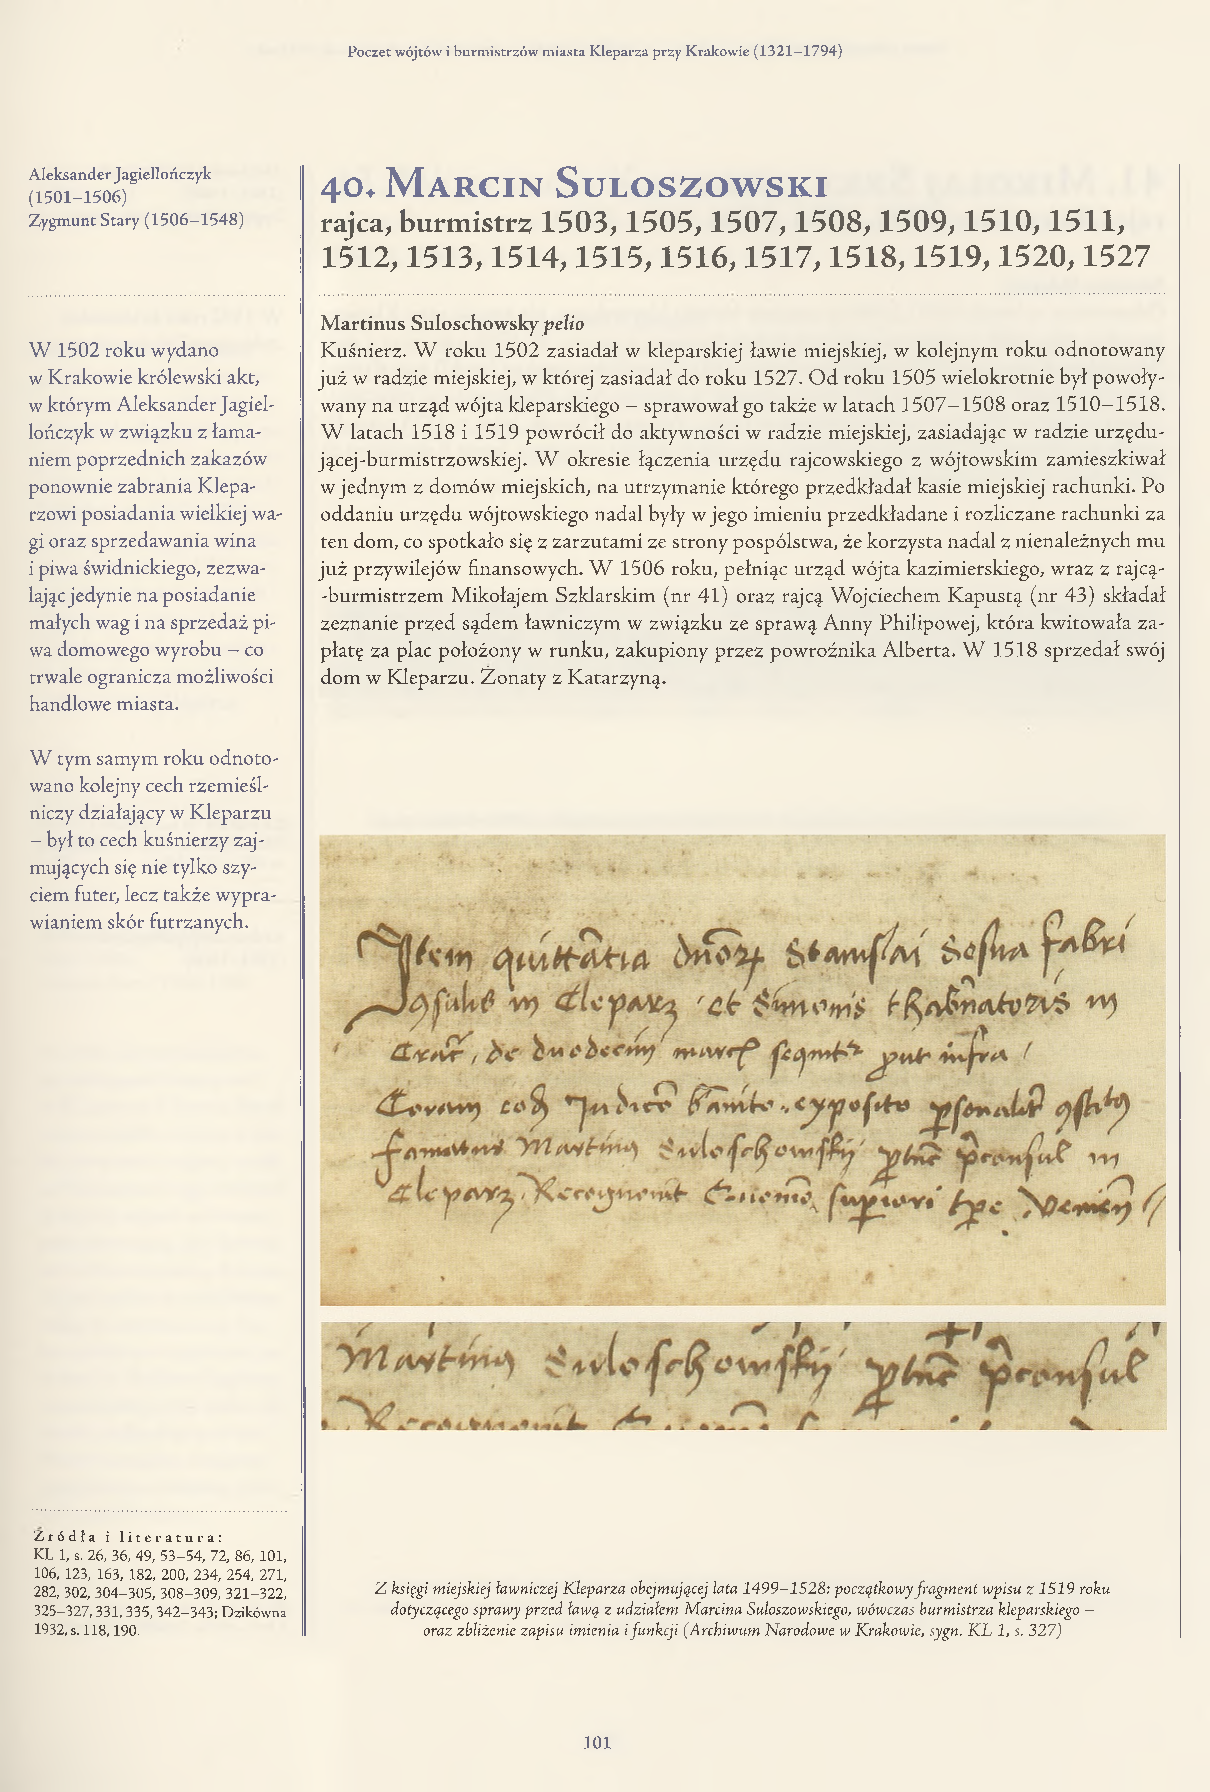 Poczet wójtów i burmistrzów miasta Kleparza przy Krakowie (1321–1794)
Aleksander Jagiellończyk
(1501–1506)
Zygmunt Stary (1506–1548)
W 1502 roku wydano
w Krakowie królewski akt,
w którym Aleksander Jagiel-
lończyk w związku z łama-
niem poprzednich zakazów
ponownie zabrania Klepa-
rzowi posiadania wielkiej wa-
gi oraz sprzedawania wina
i piwa świdnickiego, zezwa-
lając jedynie na posiadanie
małych wag i na sprzedaż pi-
wa domowego wyrobu – co
trwale ogranicza możliwości
handlowe miasta.
W tym samym roku odnoto-
wano kolejny cech rzemieśl-
niczy działający w Kleparzu
– był to cech kuśnierzy zaj-
mujących się nie tylko szy-
ciem futer, lecz także wypra-
wianiem skór futrzanych.
Źródła i literatura:
KL 1, s. 26, 36, 49, 53–54, 72, 86, 101,
106, 123, 163, 182, 200, 234, 254, 271,
282, 302, 304–305, 308–309, 321–322,
325–327, 331, 335, 342–343; Dzikówna
1932, s. 118, 190.
40. Marcin Suloszowski
rajca, burmistrz 1503, 1505, 1507, 1508, 1509, 1510, 1511,
1512, 1513, 1514, 1515, 1516, 1517, 1518, 1519, 1520, 1527
Martinus Suloschowsky pelio
Kuśnierz. W roku 1502 zasiadał w kleparskiej ławie miejskiej, w kolejnym roku odnotowany
już w radzie miejskiej, w której zasiadał do roku 1527. Od roku 1505 wielokrotnie był powoły-
wany na urząd wójta kleparskiego – sprawował go także w latach 1507–1508 oraz 1510–1518.
W latach 1518 i 1519 powrócił do aktywności w radzie miejskiej, zasiadając w radzie urzędu-
jącej-burmistrzowskiej. W okresie łączenia urzędu rajcowskiego z wójtowskim zamieszkiwał
w jednym z domów miejskich, na utrzymanie którego przedkładał kasie miejskiej rachunki. Po
oddaniu urzędu wójtowskiego nadal były w jego imieniu przedkładane i rozliczane rachunki za
ten dom, co spotkało się z zarzutami ze strony pospólstwa, że korzysta nadal z nienależnych mu
już przywilejów finansowych. W 1506 roku, pełniąc urząd wójta kazimierskiego, wraz z rajcą-
-burmistrzem Mikołajem Szklarskim (nr 41) oraz rajcą Wojciechem Kapustą (nr 43) składał
zeznanie przed sądem ławniczym w związku ze sprawą Anny Philipowej, która kwitowała za-
płatę za plac położony w runku, zakupiony przez powroźnika Alberta. W 1518 sprzedał swój
dom w Kleparzu. Żonaty z Katarzyną.
Item Stanislai fabri
in Cleparz et Simonis in
de duodecim infra
Coram exposito
Martinus Suloschowsky in
Cleparz
Martinus Suloschowsky
Z księgi miejskiej ławniczej Kleparza obejmującej lata 1499–1528: początkowy fragment wpisu z 1519 roku
dotyczącego sprawy przed ławą z udziałem Marcina Suloszowskiego, wówczas burmistrza kleparskiego –
oraz zbliżenie zapisu imienia i funkcji (Archiwum Narodowe w Krakowie, sygn. KL 1, s. 327)
101